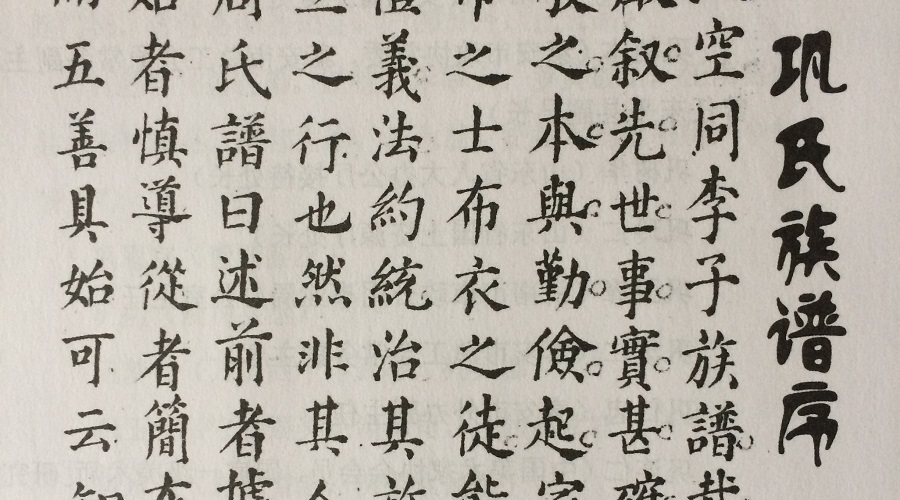 巩氏族谱序
空同李子族譜
叙先世事實甚
之本與勤儉起家
之士布衣之徒能
義法約統治其族
之行也然非其
氏譜曰述前者據
者慎導從者簡
五善具始可云